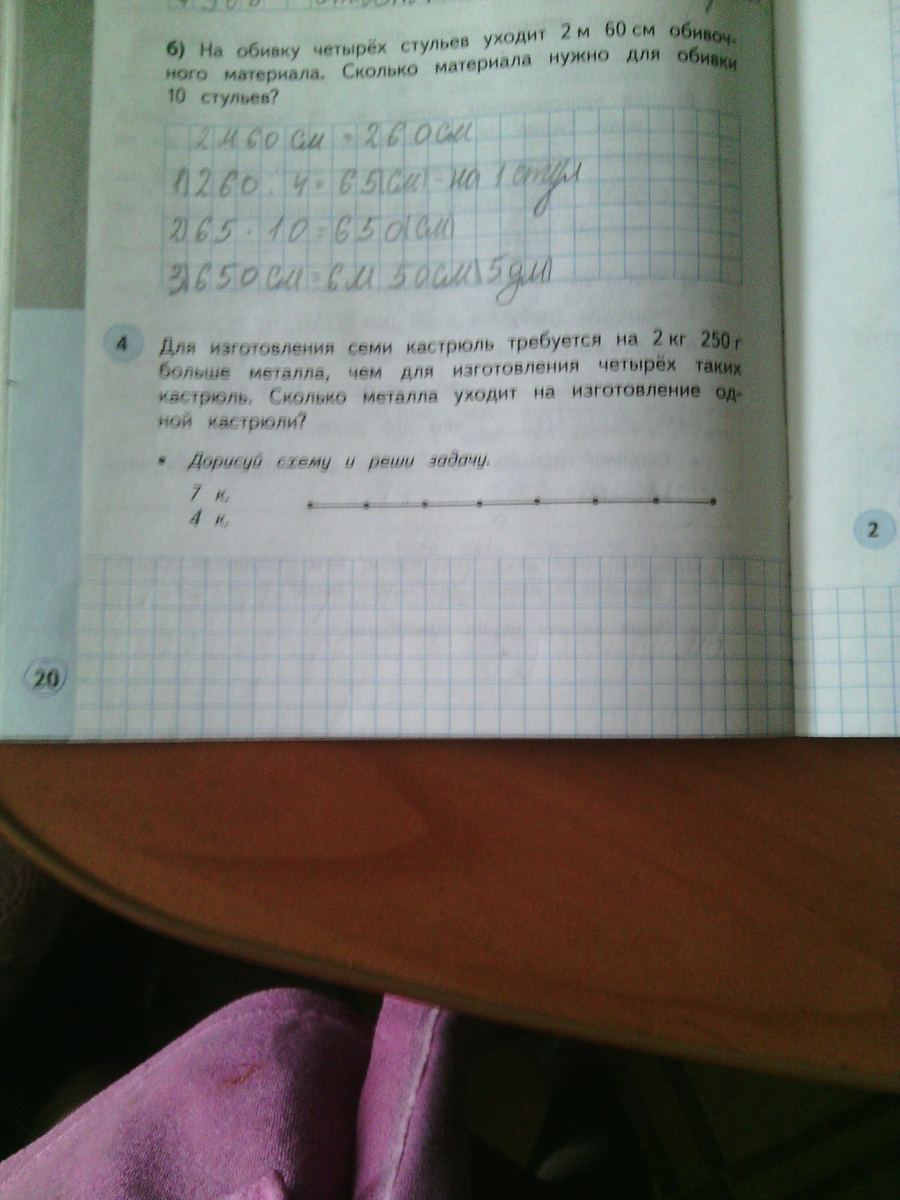 б) На обивку четырёх стульев уходит 2 м 60 см обивоч-
ного материала. Сколько материала нужно для обивки
10 стульев?
2 м 60 см = 260 см
1) 260 : 4 = 65(см) - на 1 стул
2) 65 · 10 = 650(см)
3) 650 см = 6 м 50 см(5 дм)
4 Для изготовления семи кастрюль требуется на 2 кг 250 г
больше металла, чем для изготовления четырёх таких
кастрюль. Сколько металла уходит на изготовление од-
ной кастрюли?
• Дорисуй схему и реши задачу.
7 к.
4 к.
2
20